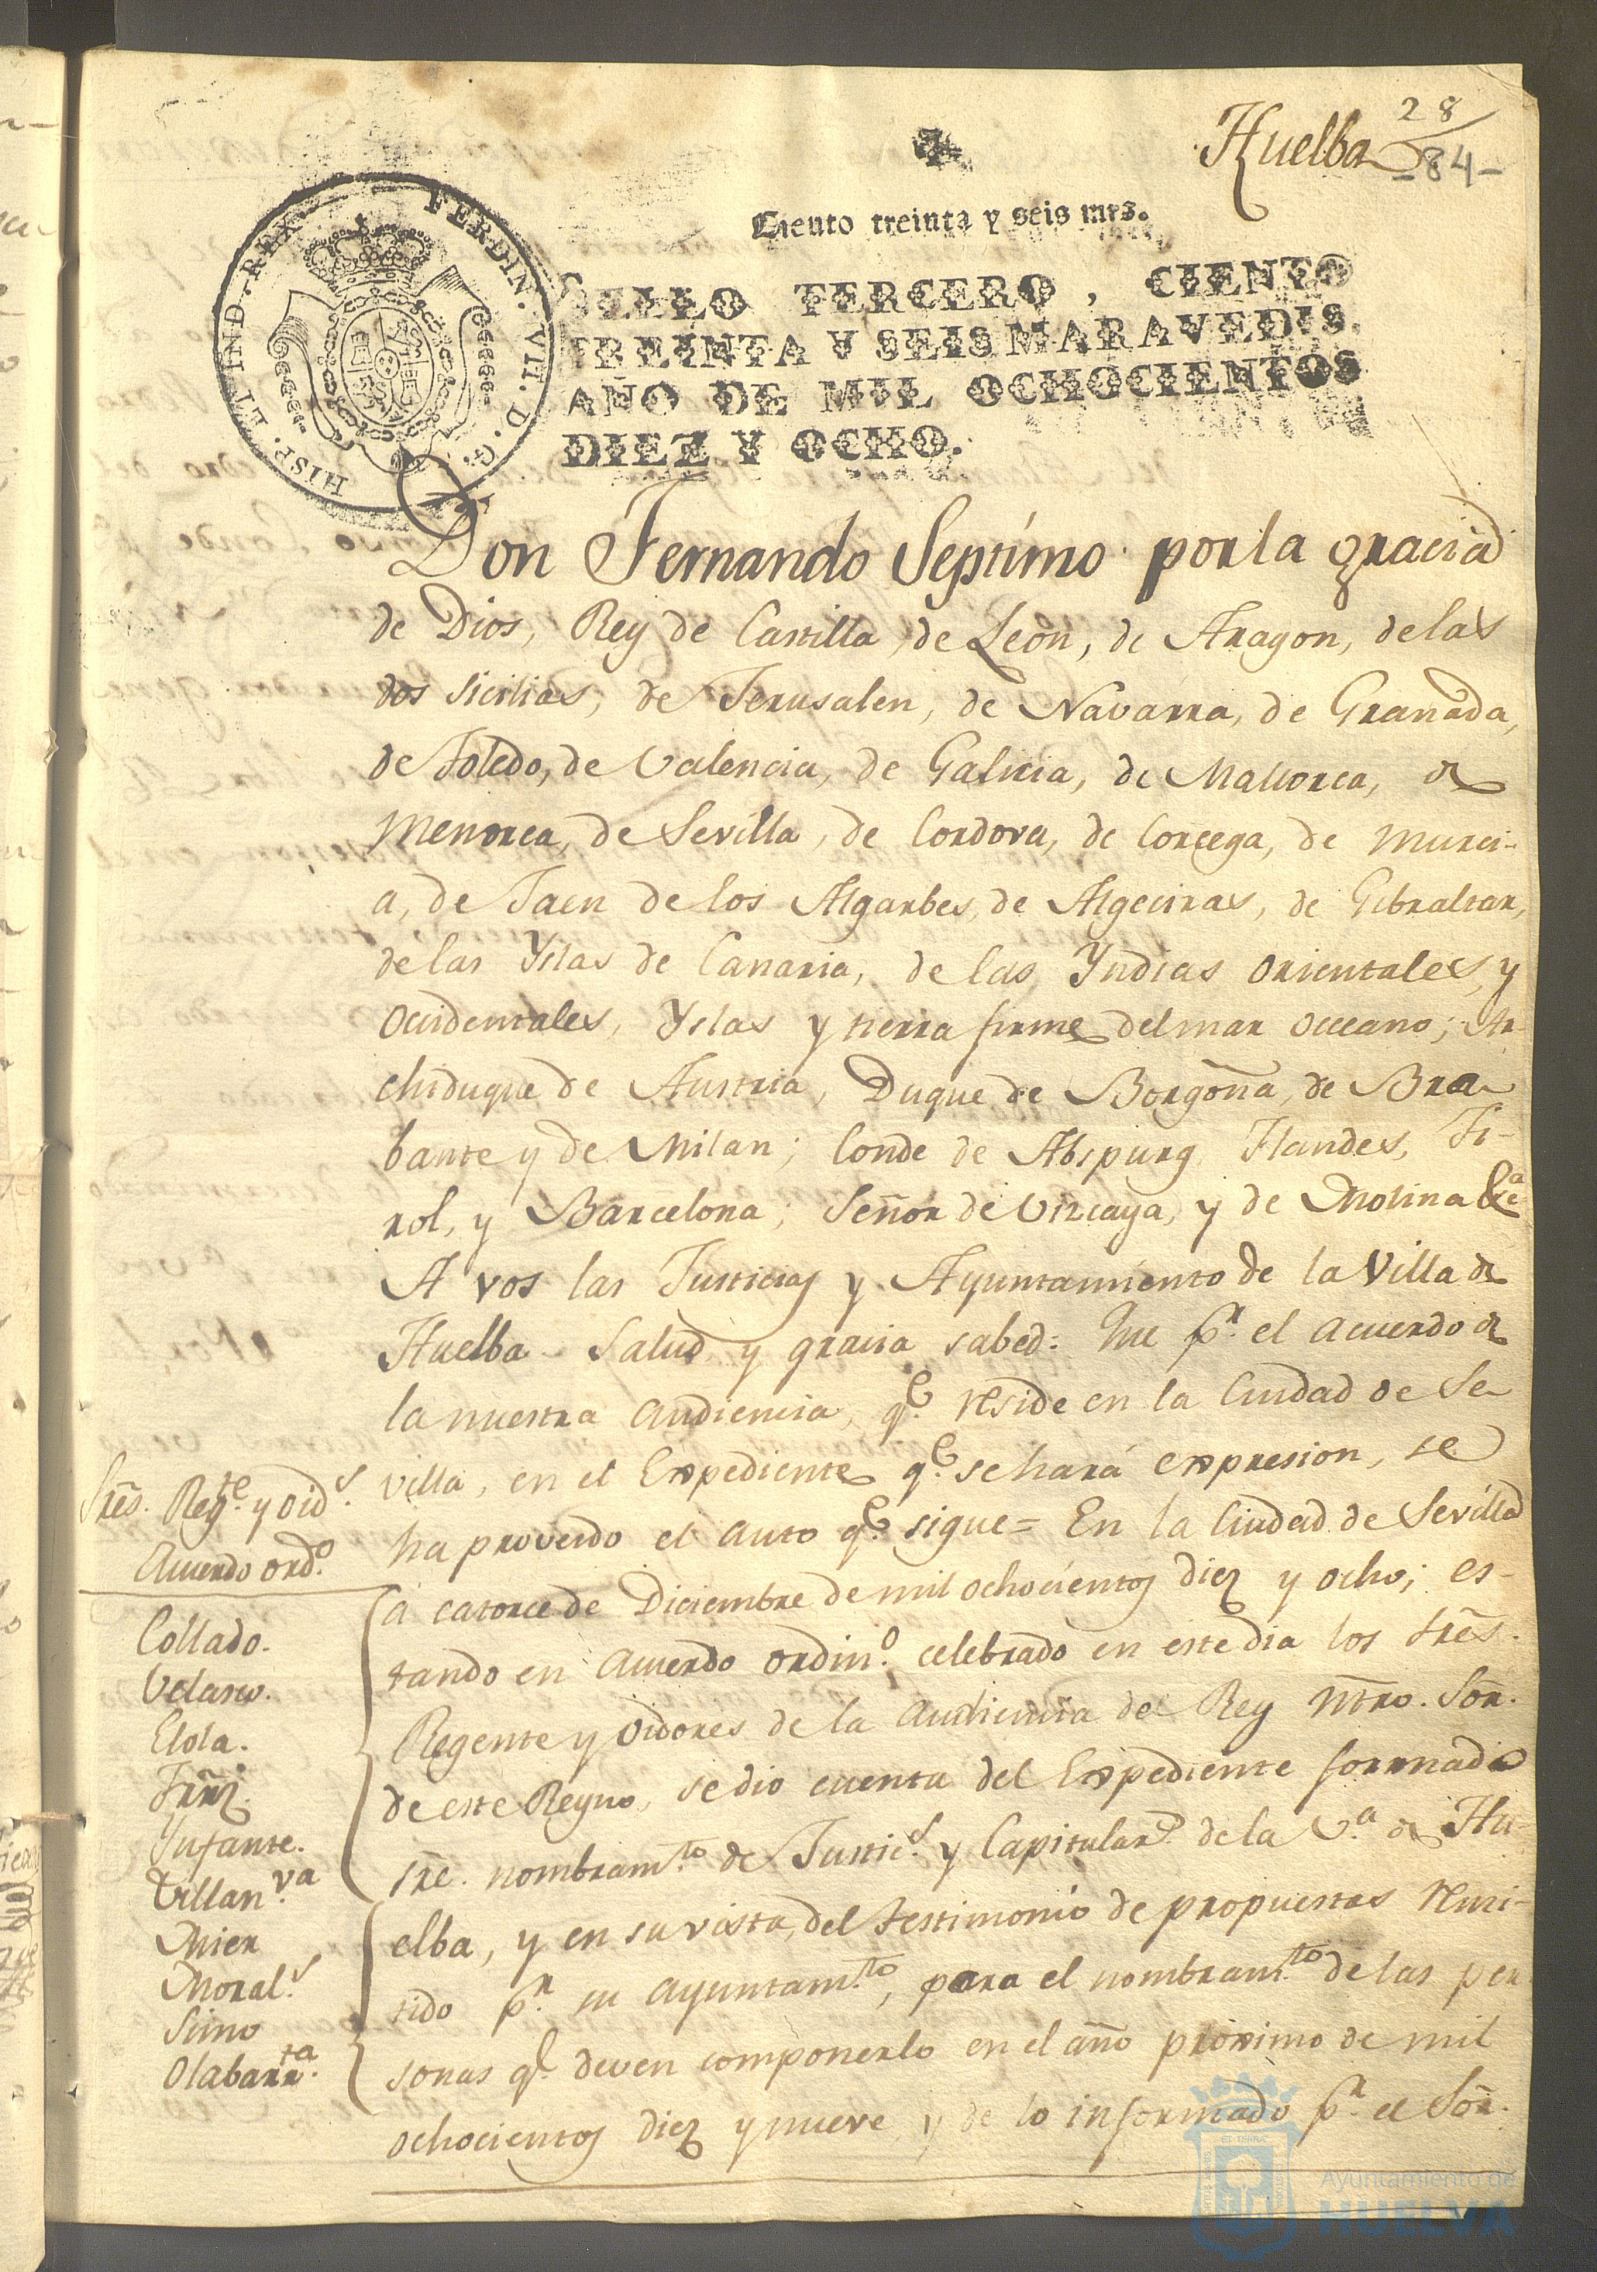 Huelba 28
-84-
Ciento treinta y seis mrs.
FERDIN. VII. D. G. HISP. ET IND. REX
SELLO TERCERO, CIENTO
TREINTA Y SEIS MARAVEDIS,
AÑO DE MIL OCHOCIENTOS
DIEZ Y OCHO.
Don Fernando Septimo por la gracia
de Dios, Rey de Castilla, de Leon, de Aragon, de las
dos Sicilias, de Jerusalen, de Navarra, de Granada,
de Toledo, de Valencia, de Galicia, de Mallorca, de
Menorca, de Sevilla, de Cordova, de Corcega, de Murci-
a, de Jaen de los Algarbes, de Algeciras, de Gibraltar,
de las Yslas de Canaria, de las Yndias orientales, y
ocidentales, Yslas y tierra firme del mar occeano; Ar-
chiduque de Austria, Duque de Borgoña, de Bra-
bante y de Milan; Conde de Abspurg Flandes, Ti-
rol, y Barcelona; Señor de Vizcaya, y de Molina &ca
A vos las Justicias y Ayuntamiento de la Villa de
Huelba Salud y gracia sabed: Que pr. el acuerdo de
la nuestra audiencia, qe. reside en la Ciudad de Se-
villa, en el Expediente qe. se hará expresion, se
ha proveido el auto qe. sigue = En la Ciudad de Sevilla
á catorce de Diciembre de mil ochocientos diez y ocho; es-
tando en acuerdo ordino. celebrado en este dia los Sres.
Regente y Oidores de la audiencia del Rey Ntro. Sor.
de este Reyno, se dio cuenta del Expediente formado
sre. nombramto. de Justics. y Capitulars. de la Va. de Hu-
elba, y en su vista, del testimonio de propuestas remi-
tido pr. su ayuntamto., para el nombramto. de las per-
sonas qe. deven componerlo en el año proximo de mil
ochocientos diez y nueve, y de lo informado pr. el Sor.
Sres. Regte. y Oids.
Acuerdo ordo.
Collado.
Velasco.
Elola.
Frnz.
Ynfante.
Villanva.
Mier
Morals.
Simo
Olabarrta.
Ayuntamiento de
HUELVA